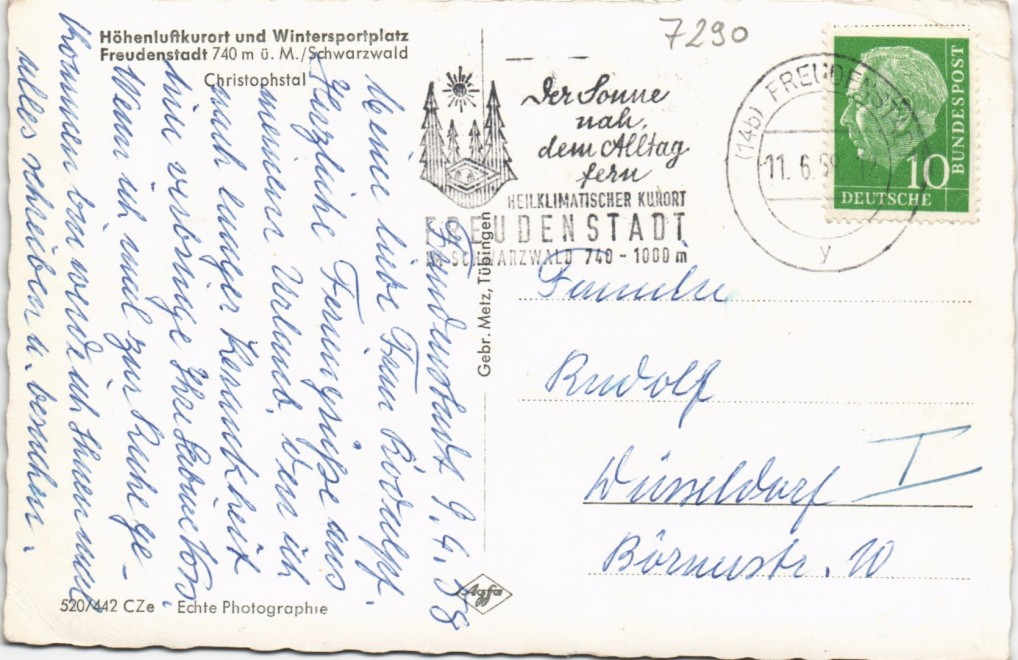 Höhenluftkurort und Wintersportplatz
Freudenstadt 740 m ü. M./Schwarzwald
Christophstal
7290
Der Sonne
nah,
dem Alltag
fern
HEILKLIMATISCHER KURORT
FREUDENSTADT
IM SCHWARZWALD 740 - 1000 m
(14b) FREUDENST
11. 6. 58 12
y
10
DEUTSCHE
BUNDESPOST
Freudenstadt 9. 6. 58
Meine liebe Frau Rudolf.
Herzliche Feriengrüße aus
meinem Urlaub, den ich
nach langer Krankheit
hier verbringe Ihre
Wenn ich mal zur Ruhe ge-
kommen bin werde ich Ihnen mal
alles schreiben u. besuchen.
Gebr. Metz, Tübingen
Familie
Rudolf
Düsseldorf I
Börnestr. 10
520/442 CZe Echte Photographie
Agfa